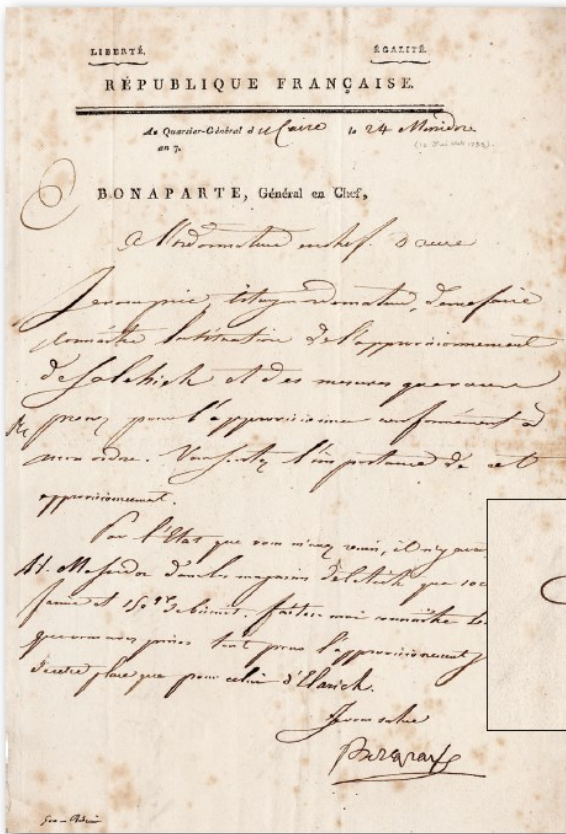 LIBERTÉ. ÉGALITÉ.
RÉPUBLIQUE FRANÇAISE.
Au Quartier-Général du Caire le 24 Messidor
an 7.
BONAPARTE, Général en Chef,
A l'ordonnateur en chef Daure
Je vous prie, Citoyen ordonnateur, de me faire
connaître la situation de l'approvisionnement
de Salehieh et des mesures que vous avez
prises pour l'approvisionner conformément à
mon ordre. Vous sentez l'importance de cet
approvisionnement.
Par l'Etat que vous m'avez remis, il n'y avait
Messidor dans les magasins d'el Arich que
farine et 150 de biscuit. faites moi connaître les
que vous avez prises tant pour l'approvisionnement
de cette place que pour celui d'Elarich.
Je vous salue